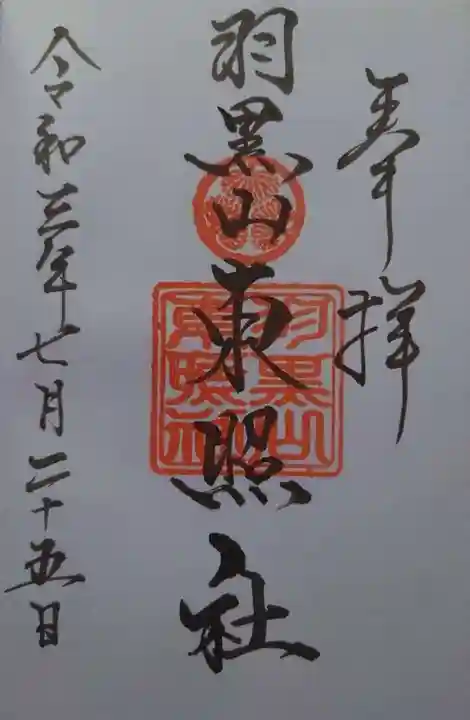 奉拝
羽黒山東照社
羽黒山
東照社
令和三年七月二十五日